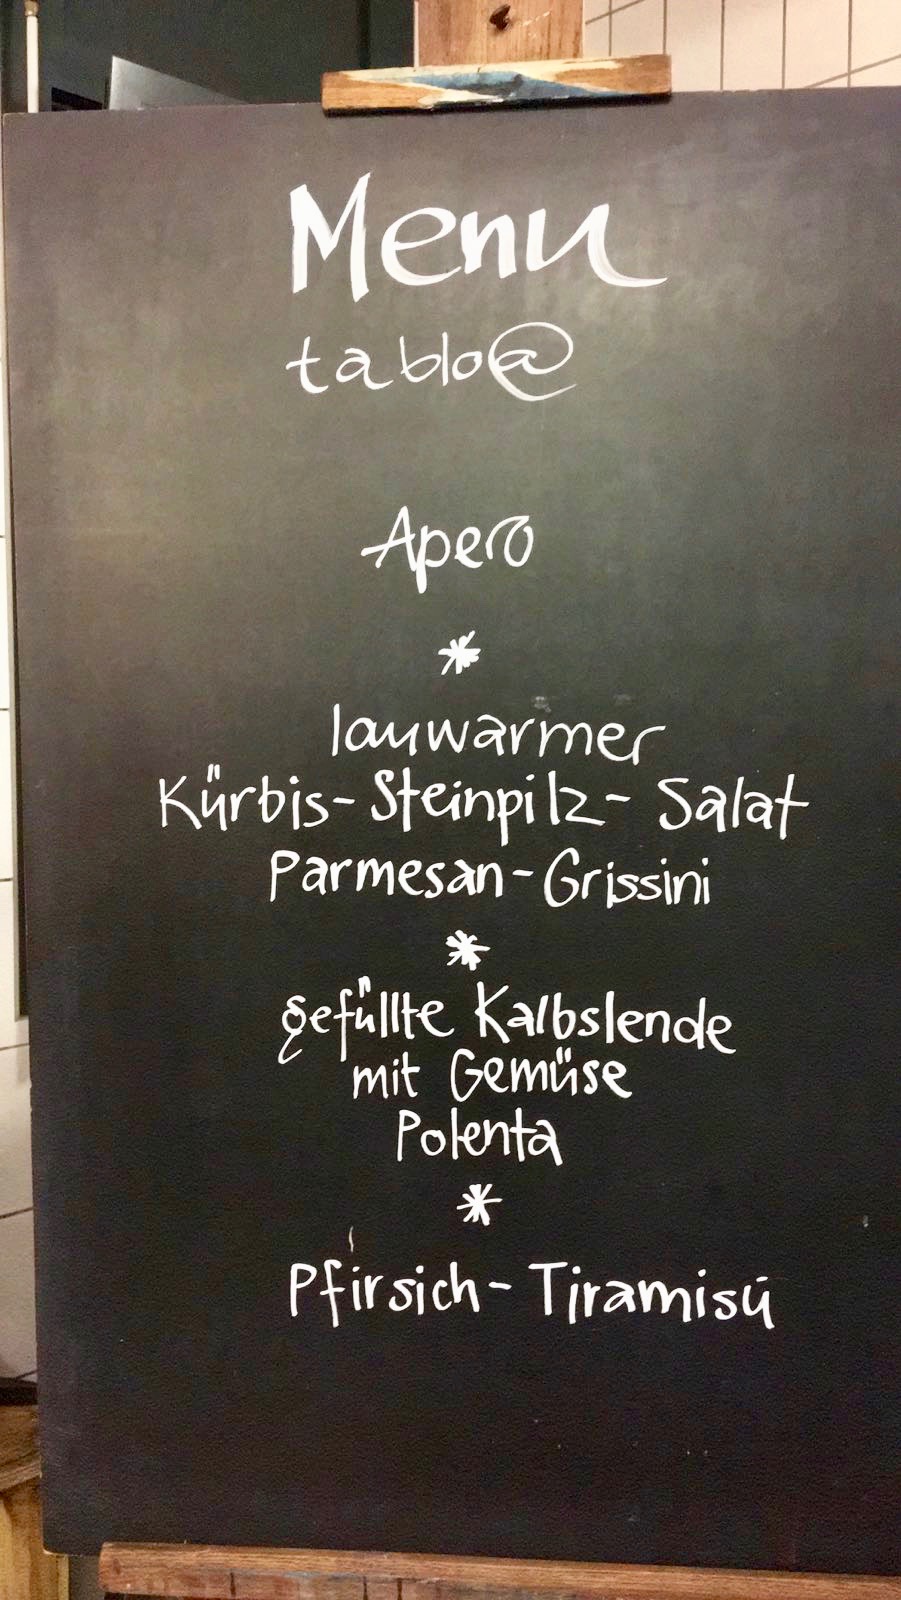 Menu
tablo@
Apero
*
lauwarmer
Kürbis-Steinpilz-Salat
Parmesan-Grissini
*
gefüllte Kalbslende
mit Gemüse
Polenta
*
Pfirsich-Tiramisú